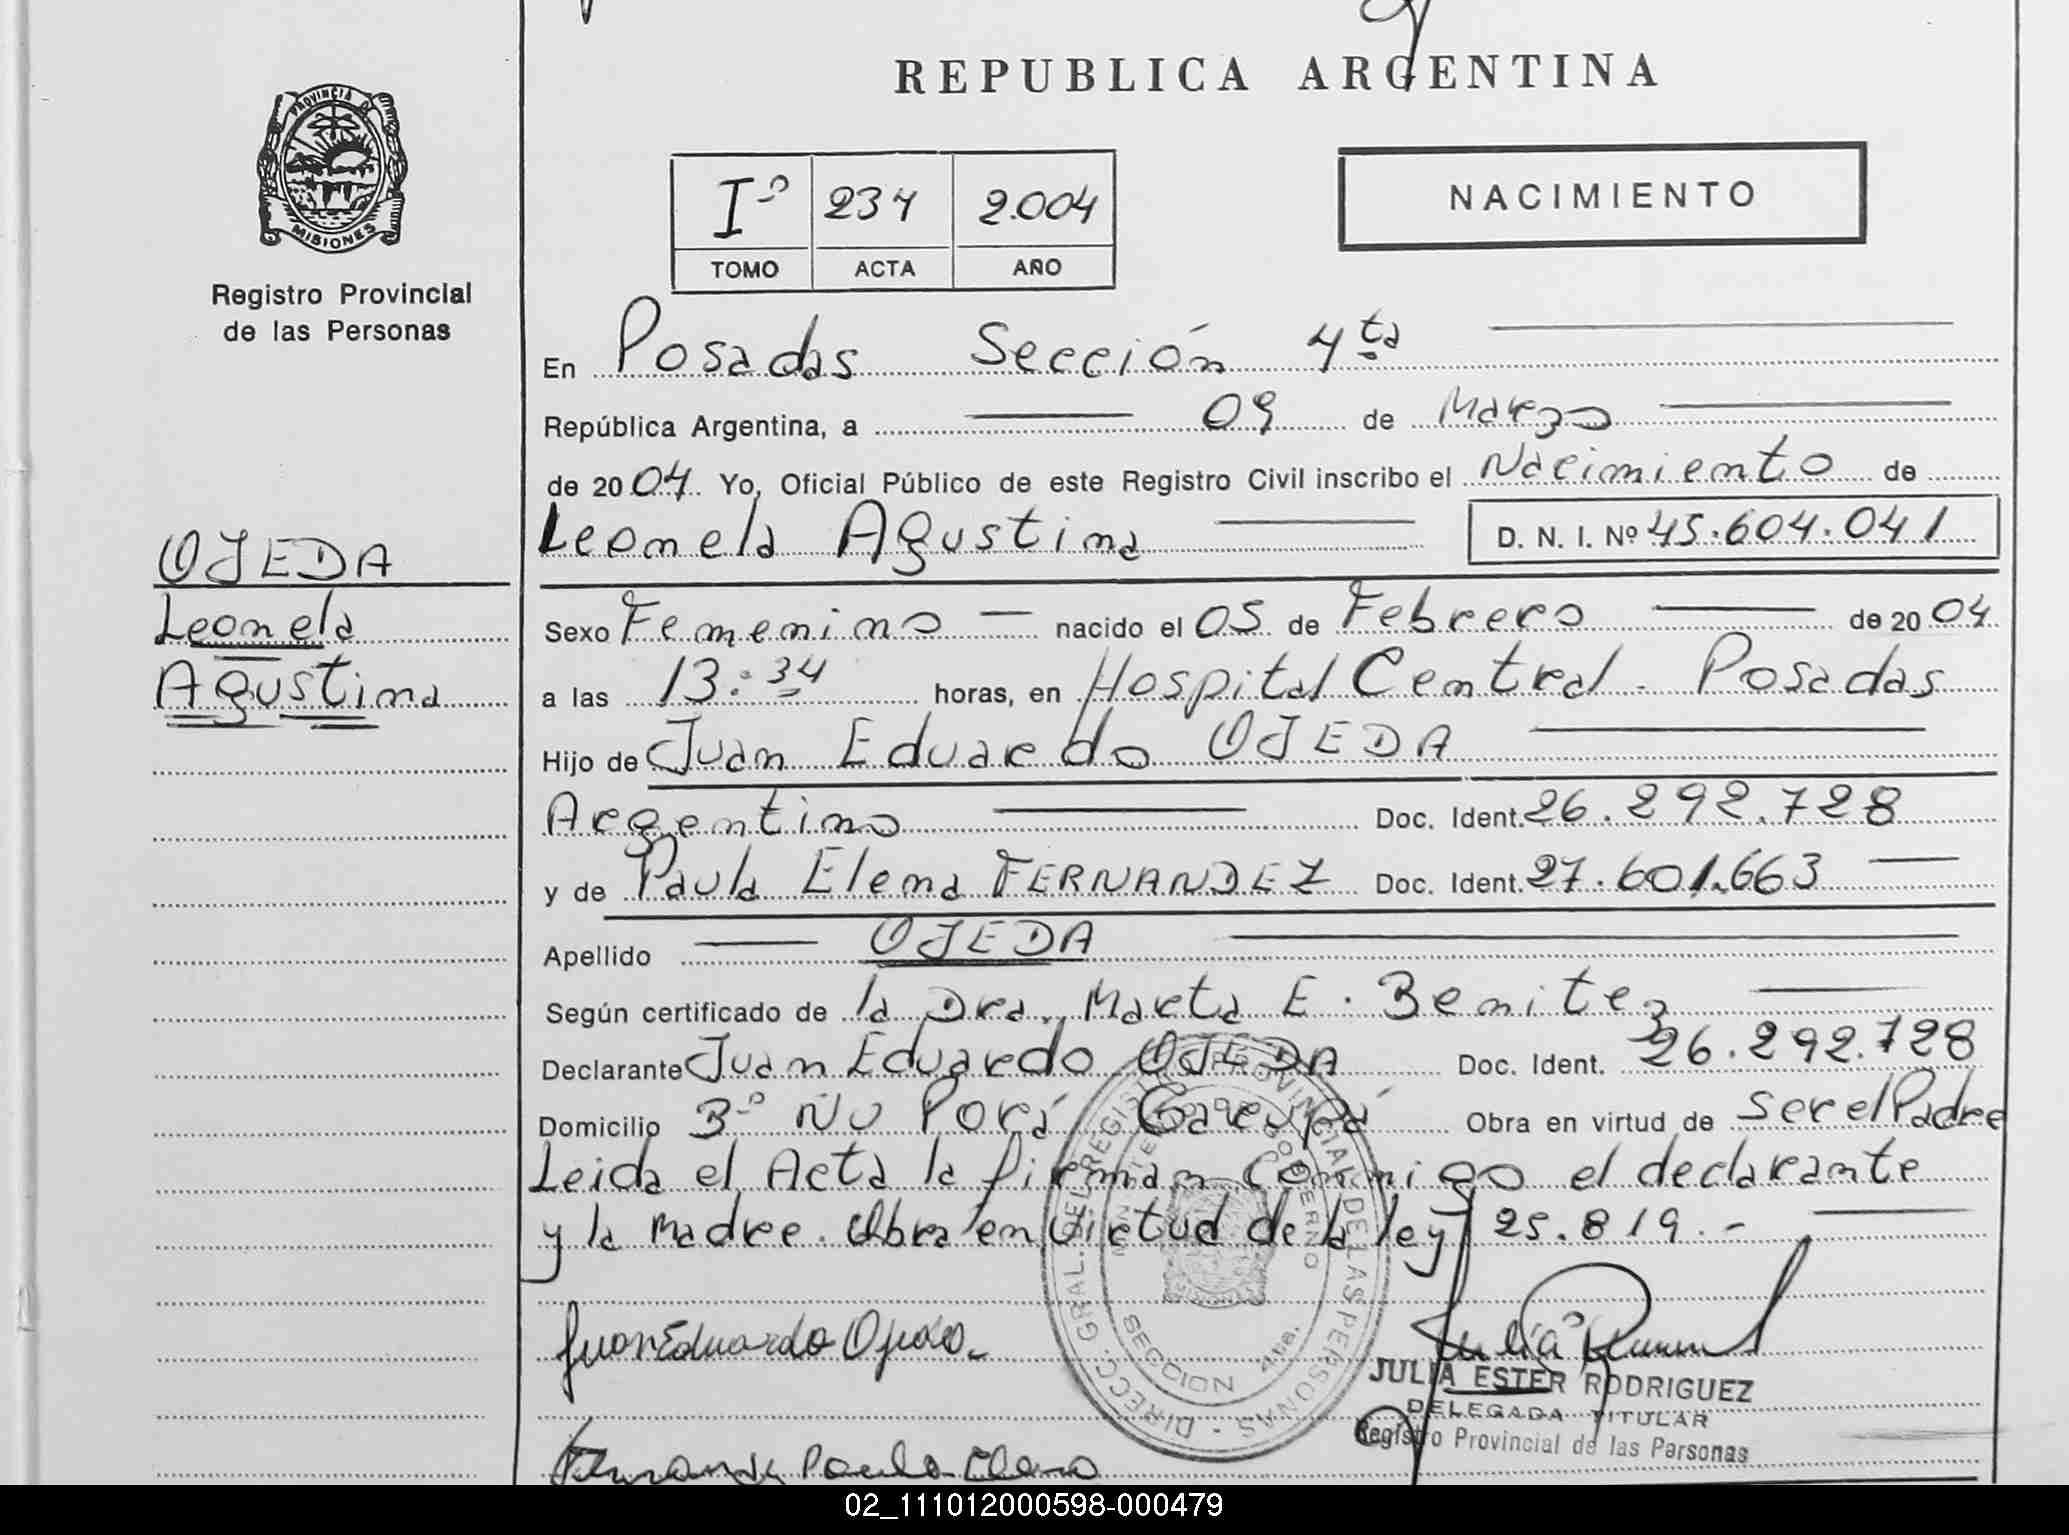 REPUBLICA ARGENTINA
PROVINCIA DE
MISIONES
Registro Provincial
de las Personas
Iº 234 2.004
TOMO ACTA AÑO
NACIMIENTO
En Posadas Sección 4ta
República Argentina, a 09 de Marzo
de 2004. Yo, Oficial Público de este Registro Civil inscribo el Nacimiento de
Leonela Agustina D. N. I. Nº 45.604.041
OJEDA
Leonela
Agustina
Sexo Femenino nacido el 05 de Febrero de 2004
a las 13:34 horas, en Hospital Central - Posadas
Hijo de Juan Eduardo OJEDA
Argentino Doc. Ident. 26.292.728
y de Paula Elena FERNANDEZ Doc. Ident. 27.601.663
Apellido OJEDA
Según certificado de la Dra. Marta E. Benitez
Declarante Juan Eduardo OJEDA Doc. Ident. 26.292.728
Domicilio Bº Ñu Porá Garupá Obra en virtud de Ser el Padre
Leida el Acta la firman conmigo el declarante
y la Madre. Obra en virtud de la ley 25.819.-
DIRECC. GRAL. DEL REGISTRO PROVINCIAL DE LAS PERSONAS
GOBIERNO
SECCION 4ta.
Juan Eduardo Ojeda
JULIA ESTER RODRIGUEZ
DELEGADA TITULAR
Registro Provincial de las Personas
Fernandez Paula Elena
02_111012000598-000479